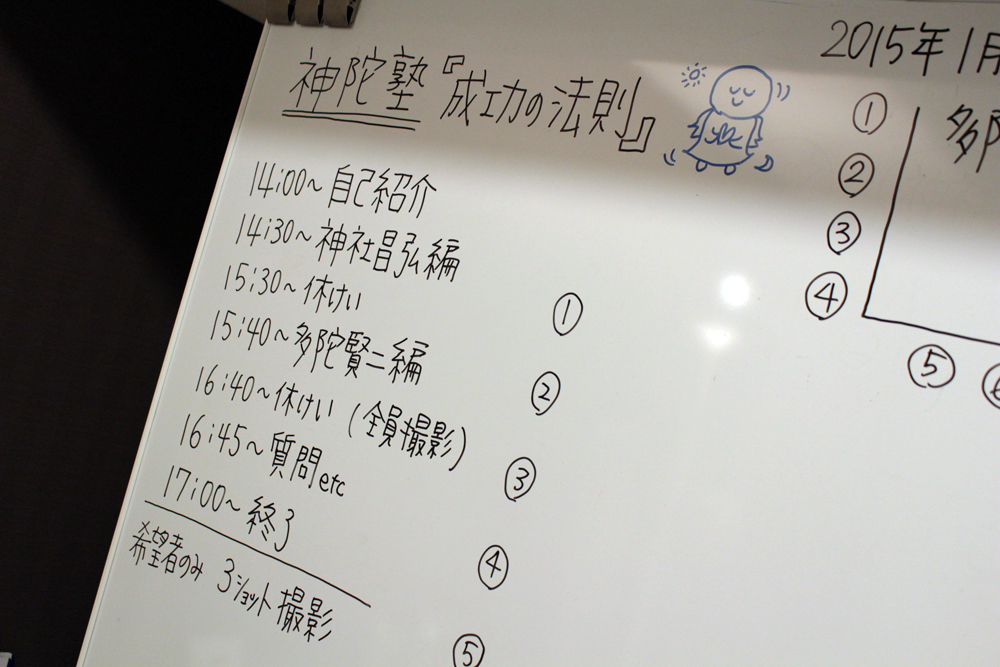 神陀塾『成功の法則』
14:00~自己紹介
14:30~神社昌弘編
15:30~休けい
15:40~多陀賢二編
16:40~休けい(全員撮影)
16:45~質問etc
17:00~終了
希望者のみ 3ショット撮影
①
②
③
④
⑤
2015年1月
①
②
③
④
多陀
⑤